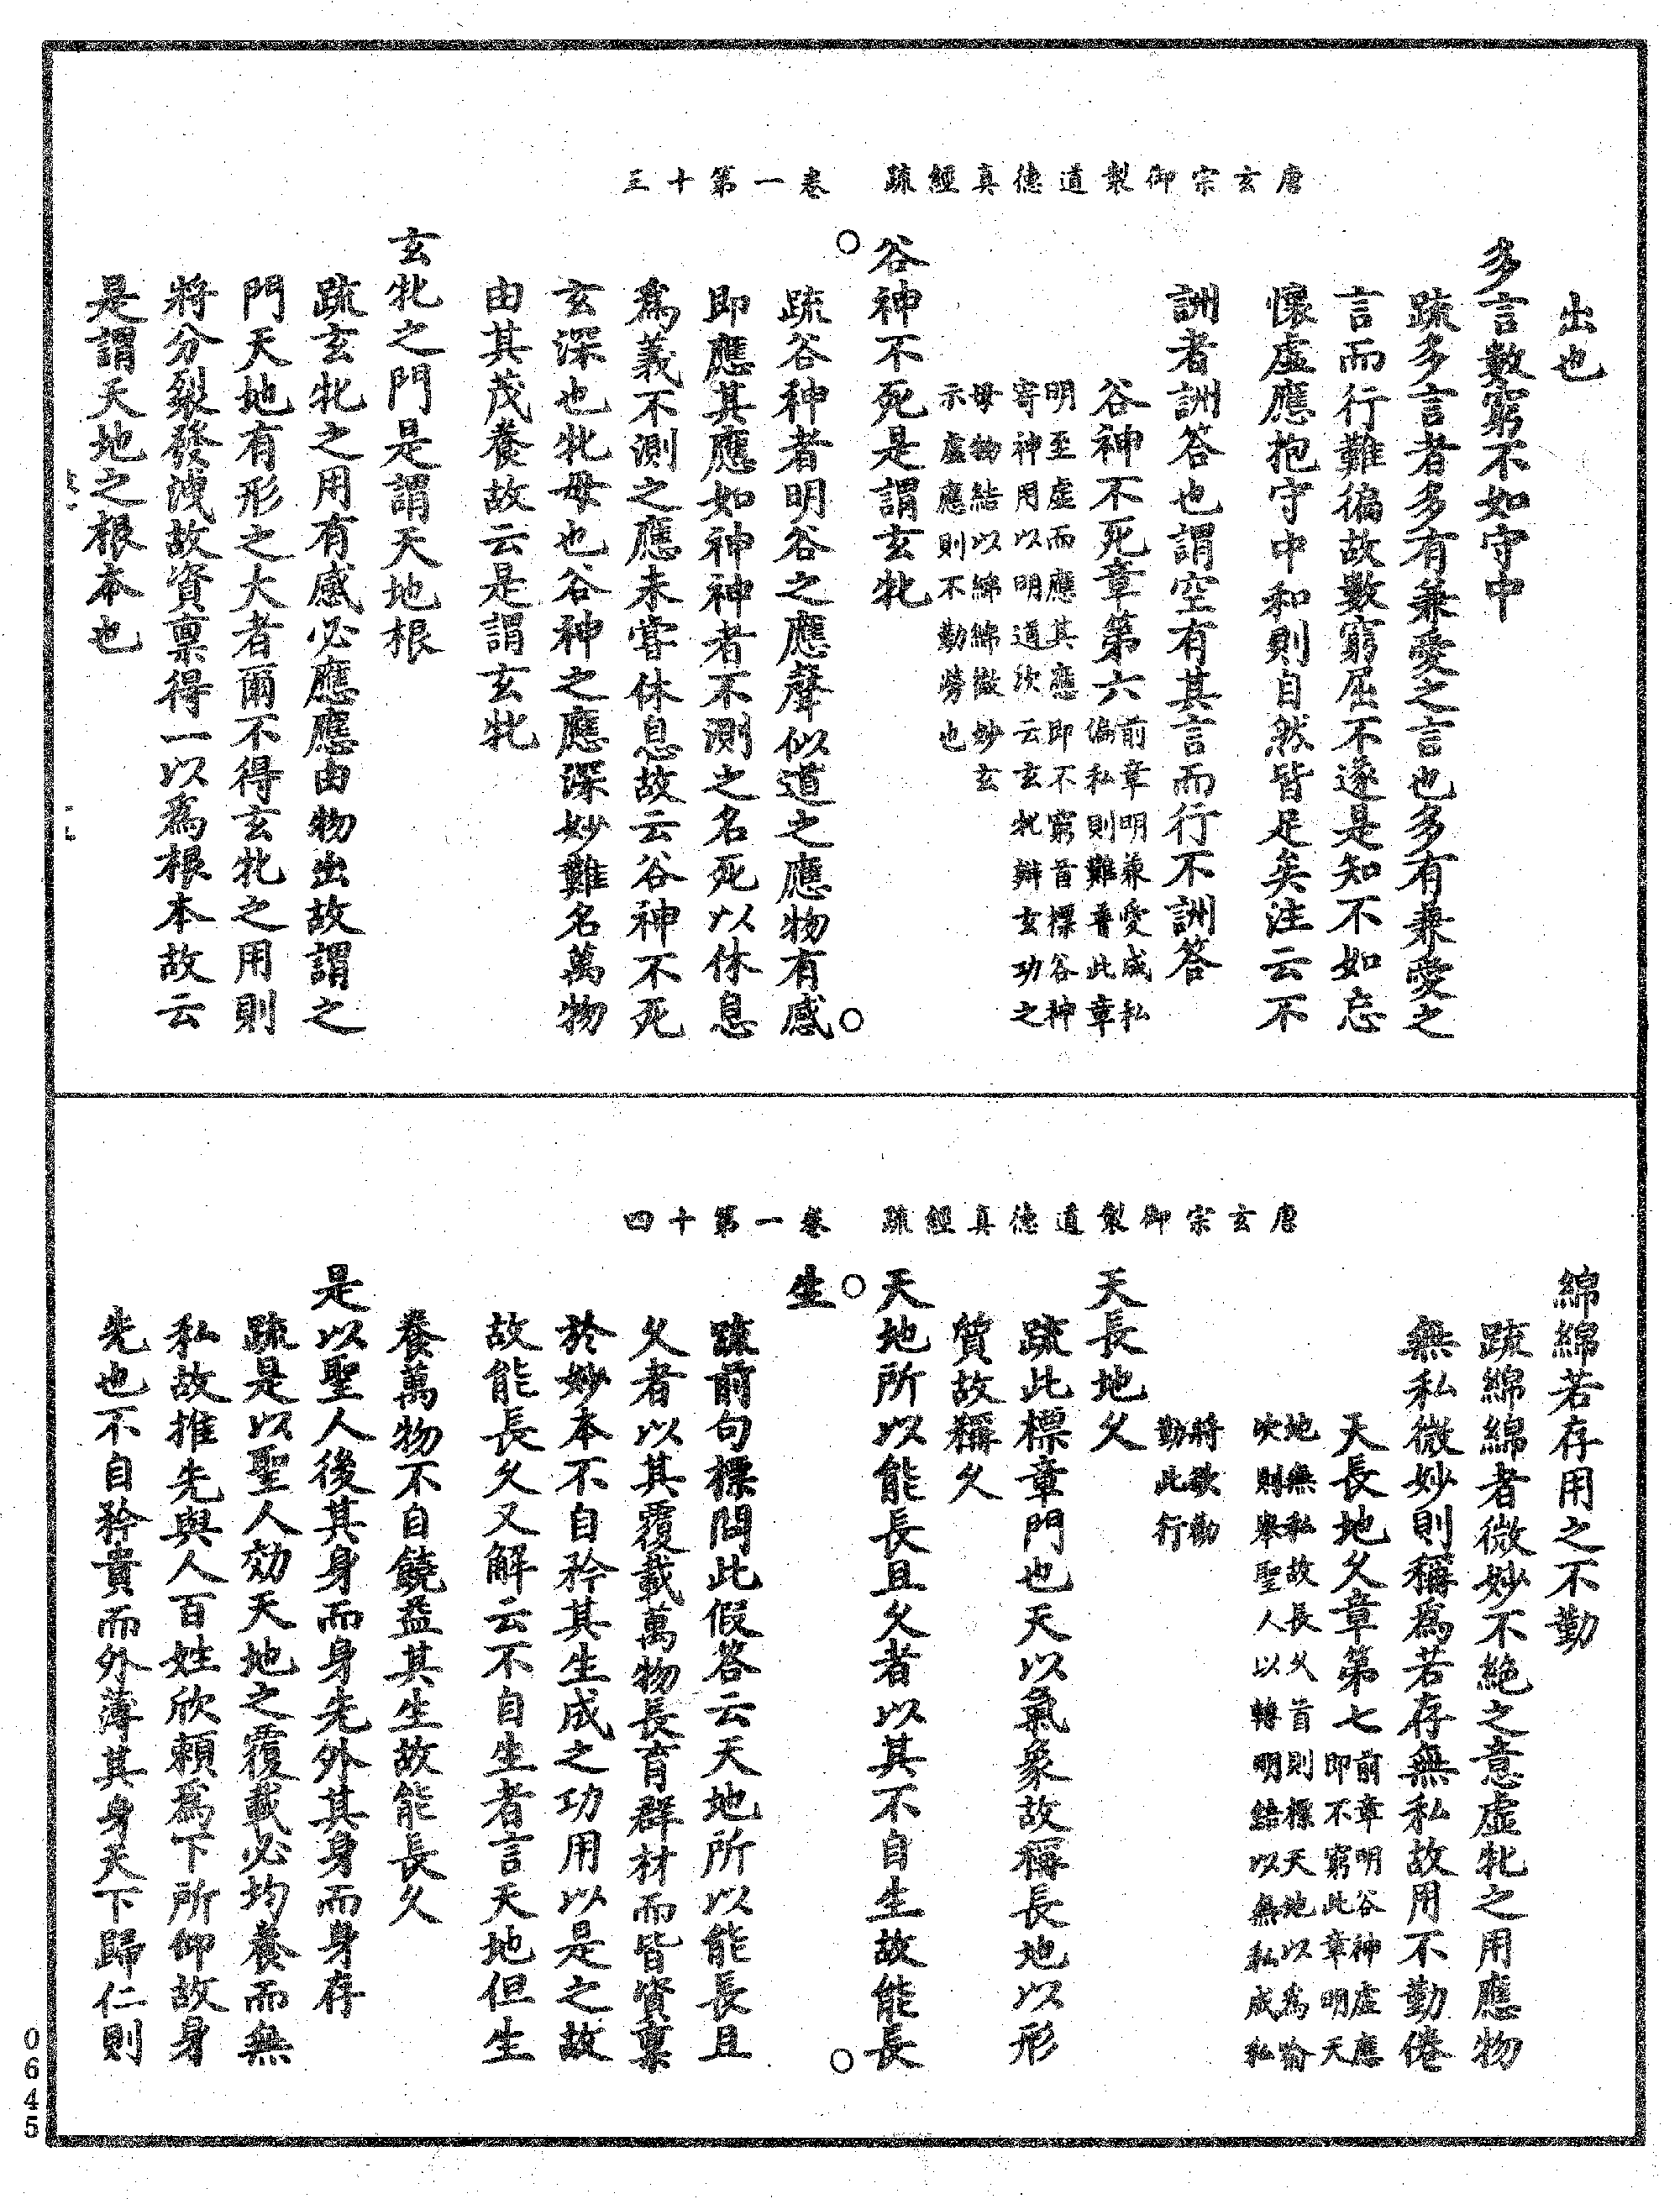 唐玄宗御製道德真經疏　卷一第十三
出也
多言數窮不如守中
疏多言者多有兼愛之言也多有兼愛之
言而行難徧故數窮屈不遂是知不如忘
懷虛應抱守中和則自然皆足矣注云不
詶者詶答也謂空有其言而行不詶答
谷神不死章第六
前章明兼愛成私
偏私則難普此章
明至虛而應其應即不窮首標谷神
寄神用以明道次云玄牝辯玄功之
母物結以綿綿微妙玄
示虛應則不勤勞也
谷神不死是謂玄牝
疏谷神者明谷之應聲似道之應物有感
即應其應如神神者不測之名死以休息
爲義不測之應未嘗休息故云谷神不死
玄深也牝母也谷神之應深妙難名萬物
由其茂養故云是謂玄牝
玄牝之門是謂天地根
疏玄牝之用有感必應應由物出故謂之
門天地有形之大者爾不得玄牝之用則
將分裂發洩故資稟得一以爲根本故云
是謂天地之根本也
唐玄宗御製道德真經疏　卷一第十四
綿綿若存用之不勤
疏綿綿者微妙不絶之意虛牝之用應物
無私微妙則稱爲若存無私故用不勤倦
天長地久章第七
前章明谷神虛應
即不窮此章明天
地無私故長久首則標天地以爲喻
次則舉聖人以轉明結以無私成私
將欲勸
勤此行
天長地久
疏此標章門也天以氣象故稱長地以形
質故稱久
天地所以能長且久者以其不自生故能長
生
疏前句標問此假答云天地所以能長且
久者以其覆載萬物長育群材而皆資稟
於妙本不自矜其生成之功用以是之故
故能長久又解云不自生者言天地但生
養萬物不自饒益其生故能長久
是以聖人後其身而身先外其身而身存
疏是以聖人効天地之覆載必均養而無
私故推先與人百姓欣賴爲下所仰故身
先也不自矜貴而外薄其身天下歸仁則
0645